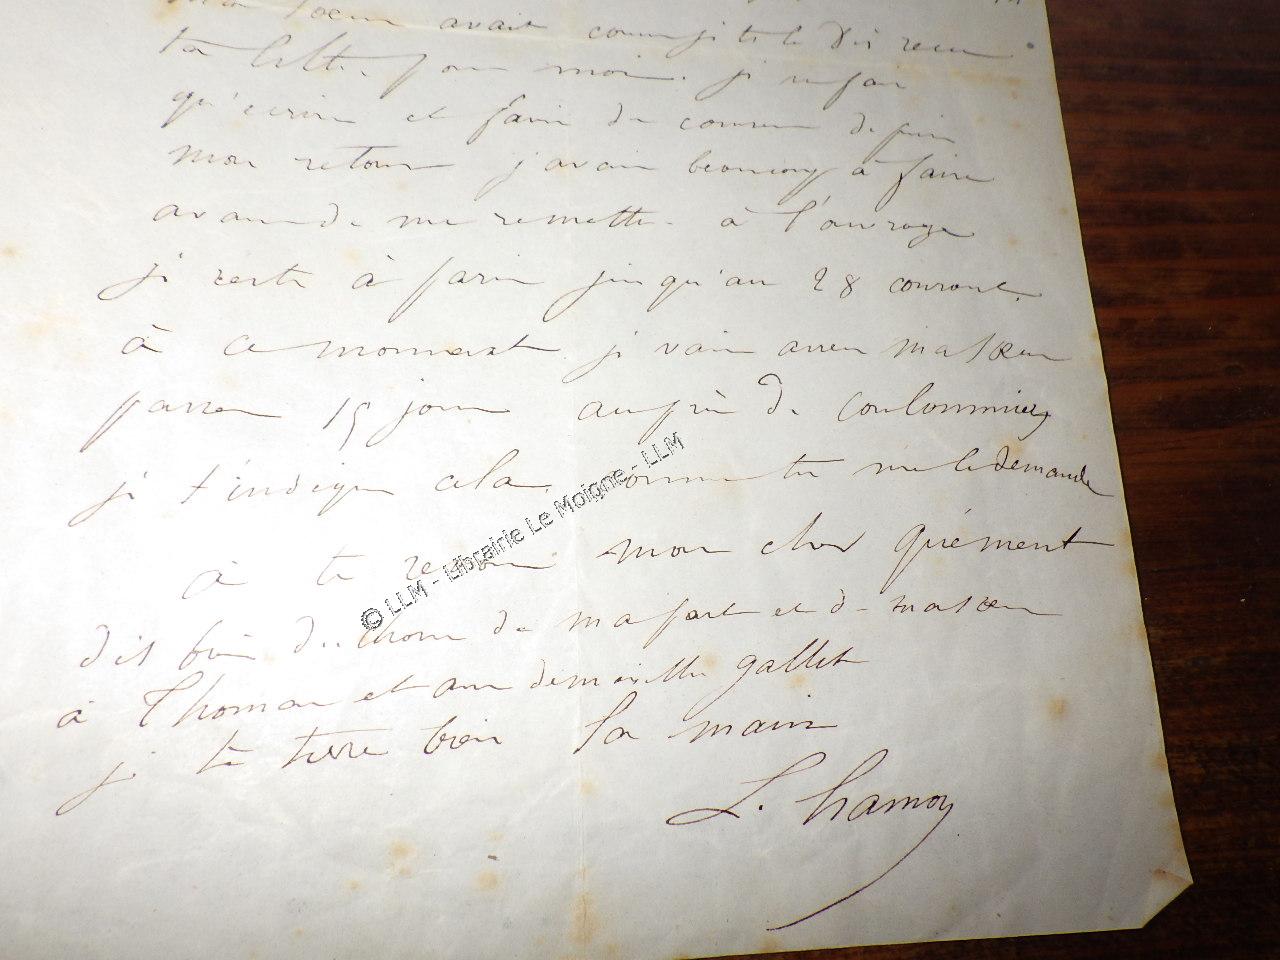 ma soeur avait comme je te le dis recu
ta lettre pour moi. je ne fais
qu'ecrire et faire des courses depuis
mon retour j'avais beaucoup à faire
avant de me remettre à l'ouvrage
je reste à paris jusqu'au 28 courant.
à ce moment je vais avec ma soeur
passer 15 jours auprès de coulommiers
je t'indique cela comme tu me le demande
à te revoir mon cher quément
dis bien des choses de ma part et de ma soeur
à Thomas et aux demoiselles gallet
je te serre bien la main
L. hamon
© LLM - Librairie Le Moigne - LLM